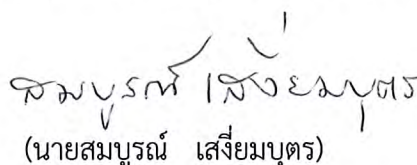 สมบูรณ์ เสงี่ยมบุตร
(นายสมบูรณ์ เสงี่ยมบุตร)